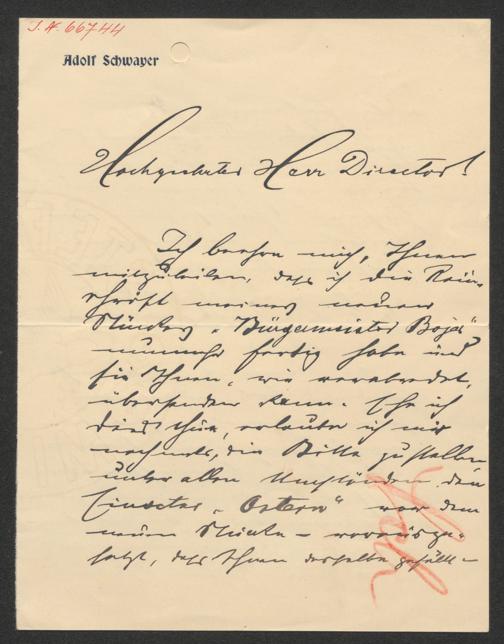 I. N. 66744
Adolf Schwayer
Hochgeehrter Herr Director!
Ich beehre mich, Ihnen
mitzuteilen, dass ich die Rein-
schrift meines neuen
Stückes „Bürgermeister Boja"
nunmehr fertig habe und
sie Ihnen, wie verabredet,
übersenden kann. Ehe ich
dies thue, erlaube ich mir
nochmals, die Bitte zu stellen
unter allen Umständen den
Einacter „Ostern" vor dem
neuen Stücke – vorausge-
setzt, dass Ihnen dasselbe gefällt –